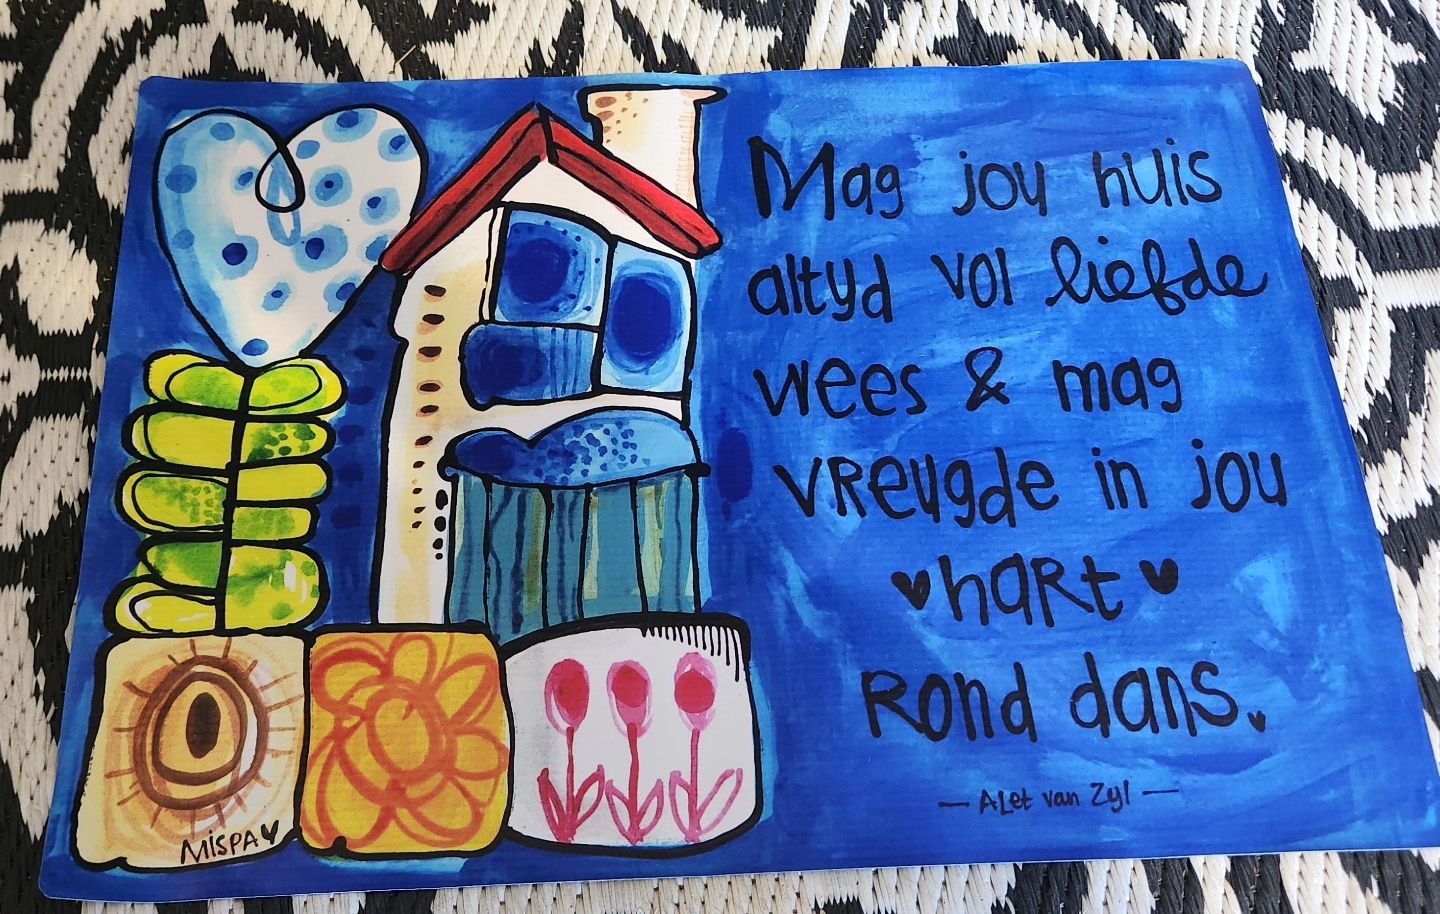 Mag jou huis
altyd vol liefde
wees & mag
vreugde in jou
♥ hart ♥
rond dans.
— Alet van Zyl —
MISPA♥